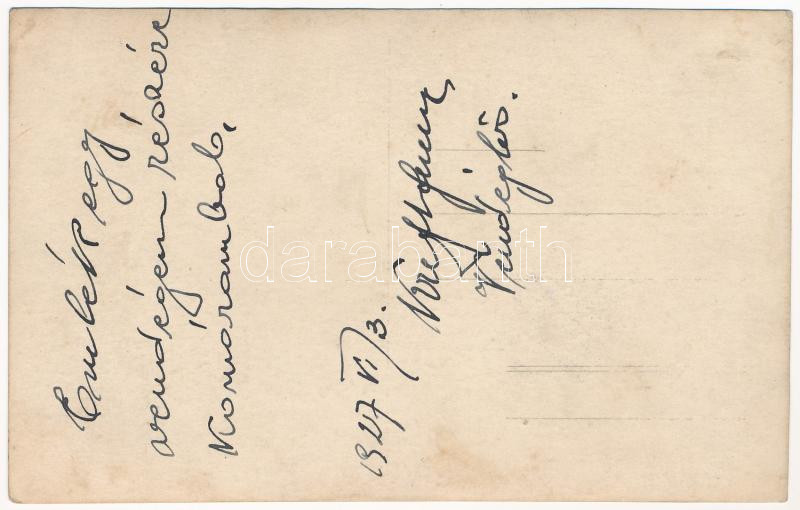 Emlék egy
vendégem részére
Komáromból,
1927 VI/3.
Vendéglős.
darabanth